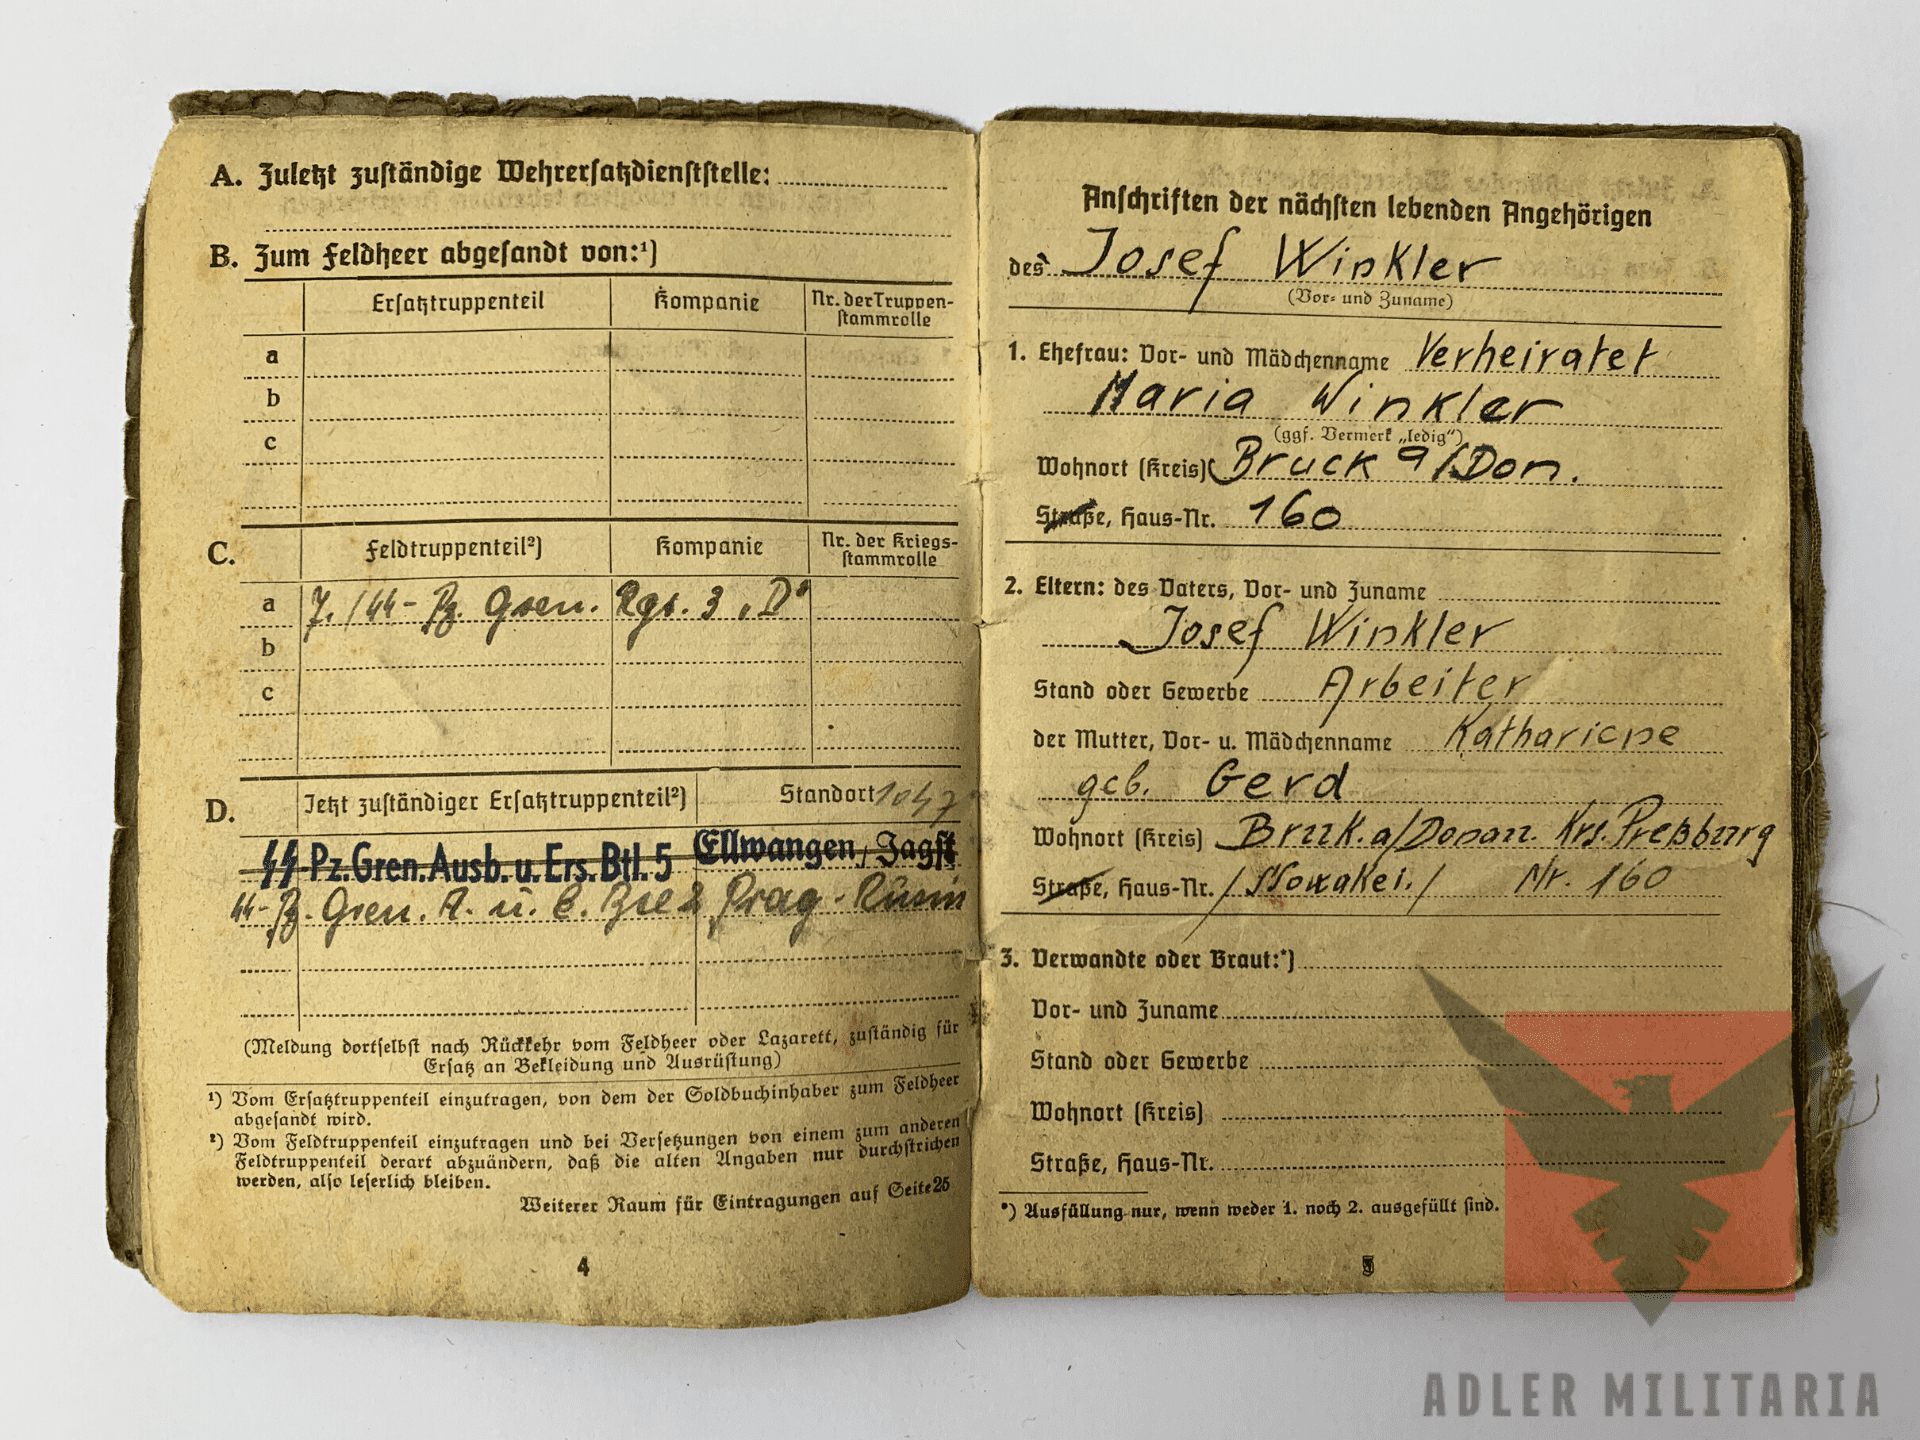 A. Zuletzt zuständige Wehrersatzdienststelle:
B. Zum Feldheer abgesandt von:¹)
Ersatztruppenteil Kompanie Nr. der Truppen-
stammrolle
a
b
c
C. Feldtruppenteil²) Kompanie Nr. der Kriegs-
stammrolle
a 7./SS-Pz. Gren. Rgt. 3 „D"
b
c
D. Jetzt zuständiger Ersatztruppenteil²) Standort 1047
SS Pz. Gren. Ausb. u. Ers. Btl. 5 Ellwangen, Jagst
SS-Pz. Gren. A. u. E. 2 Prag-Rusin
(Meldung dortselbst nach Rückkehr vom Feldheer oder Lazarett, zuständig für
Ersatz an Bekleidung und Ausrüstung)
¹) Vom Ersatztruppenteil einzutragen, von dem der Soldbuchinhaber zum Feldheer
abgesandt wird.
²) Vom Feldtruppenteil einzutragen und bei Versetzungen von einem zum anderen
Feldtruppenteil derart abzuändern, daß die alten Angaben nur durchstrichen
werden, also leserlich bleiben.
Weiterer Raum für Eintragungen auf Seite 25
4
Anschriften der nächsten lebenden Angehörigen
des Josef Winkler
(Vor- und Zuname)
1. Ehefrau: Vor- und Mädchenname Verheiratet
Maria Winkler
(ggf. Vermerk „ledig")
Wohnort (Kreis) Bruck a/Don.
Straße, Haus-Nr. 160
2. Eltern: des Vaters, Vor- und Zuname
Josef Winkler
Stand oder Gewerbe Arbeiter
der Mutter, Vor- u. Mädchenname Katharicne
geb. Gerd
Wohnort (Kreis) Bruk. a/Donau. Krs. Preßburg
Straße, Haus-Nr. /Slowakei./ Nr. 160
3. Verwandte oder Braut:*)
Vor- und Zuname
Stand oder Gewerbe
Wohnort (Kreis)
Straße, Haus-Nr.
*) Ausfüllung nur, wenn weder 1. noch 2. ausgefüllt sind.
5
ADLER MILITARIA